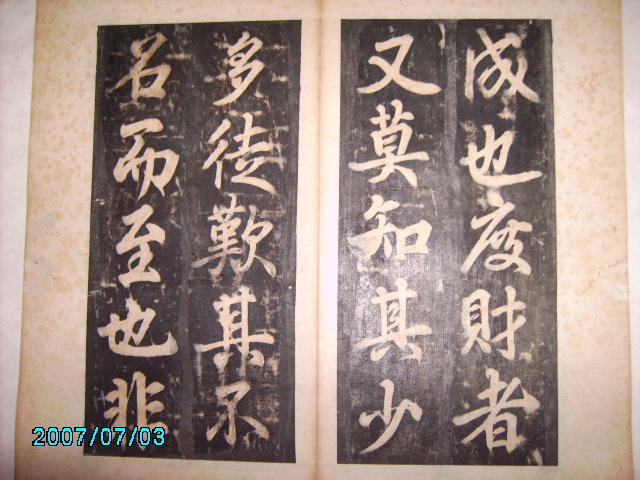 成也度財者
又莫知其少
多徒歎其不
召而至也非
2007/07/03